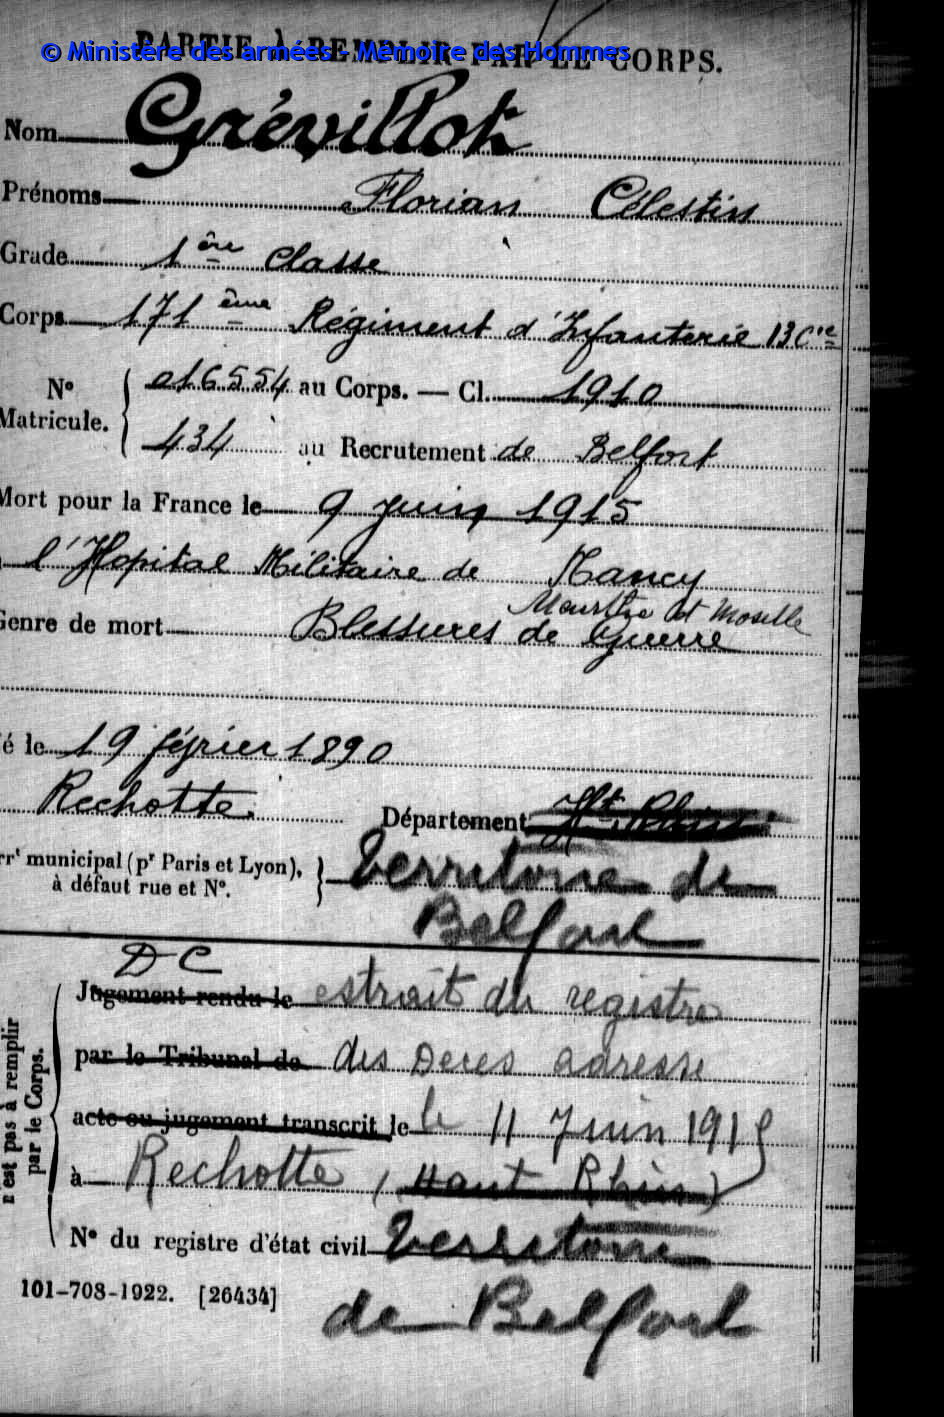 PARTIE À REMPLIR PAR LE CORPS.
© Ministère des armées - Mémoire des Hommes
Nom Grévillot
Prénoms Florian Célestin
Grade 1ère classe
Corps 171ème Régiment d'Infanterie 13 Cie
N° Matricule. { 016554 au Corps. — Cl. 1910
434 au Recrutement de Belfort
Mort pour la France le 9 juin 1915
l'Hopital Militaire de Nancy
Meurthe et Moselle
Genre de mort Blessures de Guerre
é le 19 février 1890
Rechotte. Département Ht Rhin
rrt municipal (pr Paris et Lyon), à défaut rue et N°. } territoire de
Belfort
DC
Jugement rendu le extrait du registre
par le Tribunal de des Deces adresse
acte ou jugement transcrit le le 11 Juin 1915
à Rechotte (Haut Rhin)
N° du registre d'état civil territoire
de Belfort
n'est pas à remplir par le Corps.
101-708-1922. [26434]